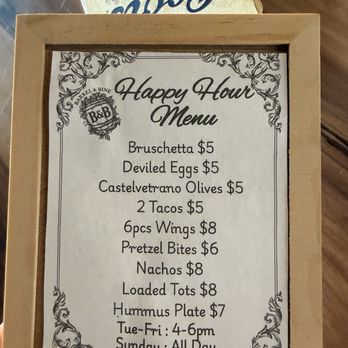 Happy Hour
Menu
BARREL & BINE
B&B
Bruschetta $5
Deviled Eggs $5
Castelvetrano Olives $5
2 Tacos $5
6pcs Wings $8
Pretzel Bites $6
Nachos $8
Loaded Tots $8
Hummus Plate $7
Tue-Fri : 4-6pm
Sunday : All Day